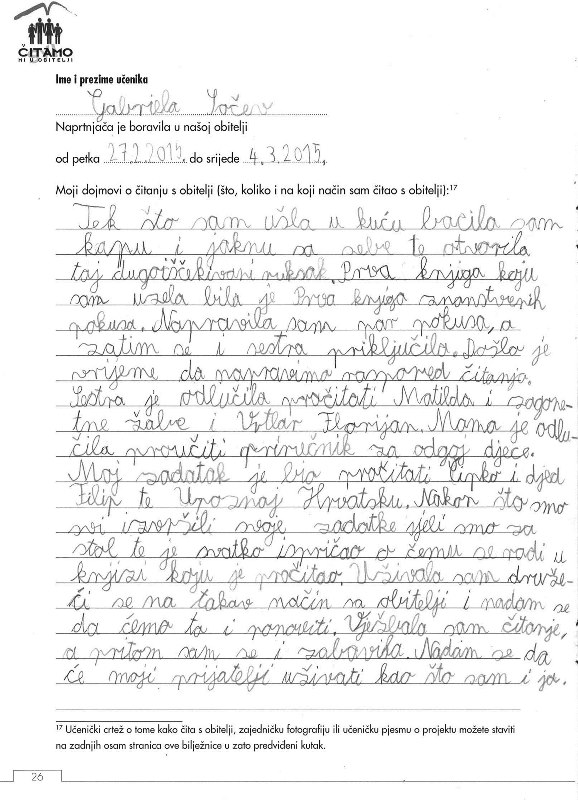 ČITAMO
MI U OBITELJI
Ime i prezime učenika
Gabriela Sočev
Naprtnjača je boravila u našoj obitelji
od petka 27.2.2015. do srijede 4.3.2015.
Moji dojmovi o čitanju s obitelji (što, koliko i na koji način sam čitao s obitelji):17
Tek što sam ušla u kuću bacila sam
kapu i jaknu sa sebe te otvorila
taj dugoiščekivani ruksak. Prva knjiga koju
sam uzela bila je Prva knjiga znanstvenih
pokusa. Napravila sam par pokusa, a
zatim se i sestra priključila. Došlo je
vrijeme da napravimo raspored čitanja.
Sestra je odlučila pročitati Matilda i zagone-
tne žabe i Vrtlar Florijan. Mama je odlu-
čila proučiti priručnik za odgoj djece.
Moj zadatak je bio pročitati Lipko i djed
Filip te Upoznaj Hrvatsku. Nakon što smo
svi izvršili svoje zadatke sjeli smo za
stol te je svatko ispričao o čemu se radi u
knjizi koju je pročitao. Uživala sam druže-
ći se na takav način sa obitelji i nadam se
da ćemo to i ponoviti. Vježbala sam čitanje,
a pritom sam se i zabavila. Nadam se da
će moji prijatelji uživati kao što sam i ja.
17 Učenički crtež o tome kako čita s obitelji, zajedničku fotografiju ili učeničku pjesmu o projektu možete staviti
na zadnjih osam stranica ove bilježnice u zato predviđeni kutak.
26